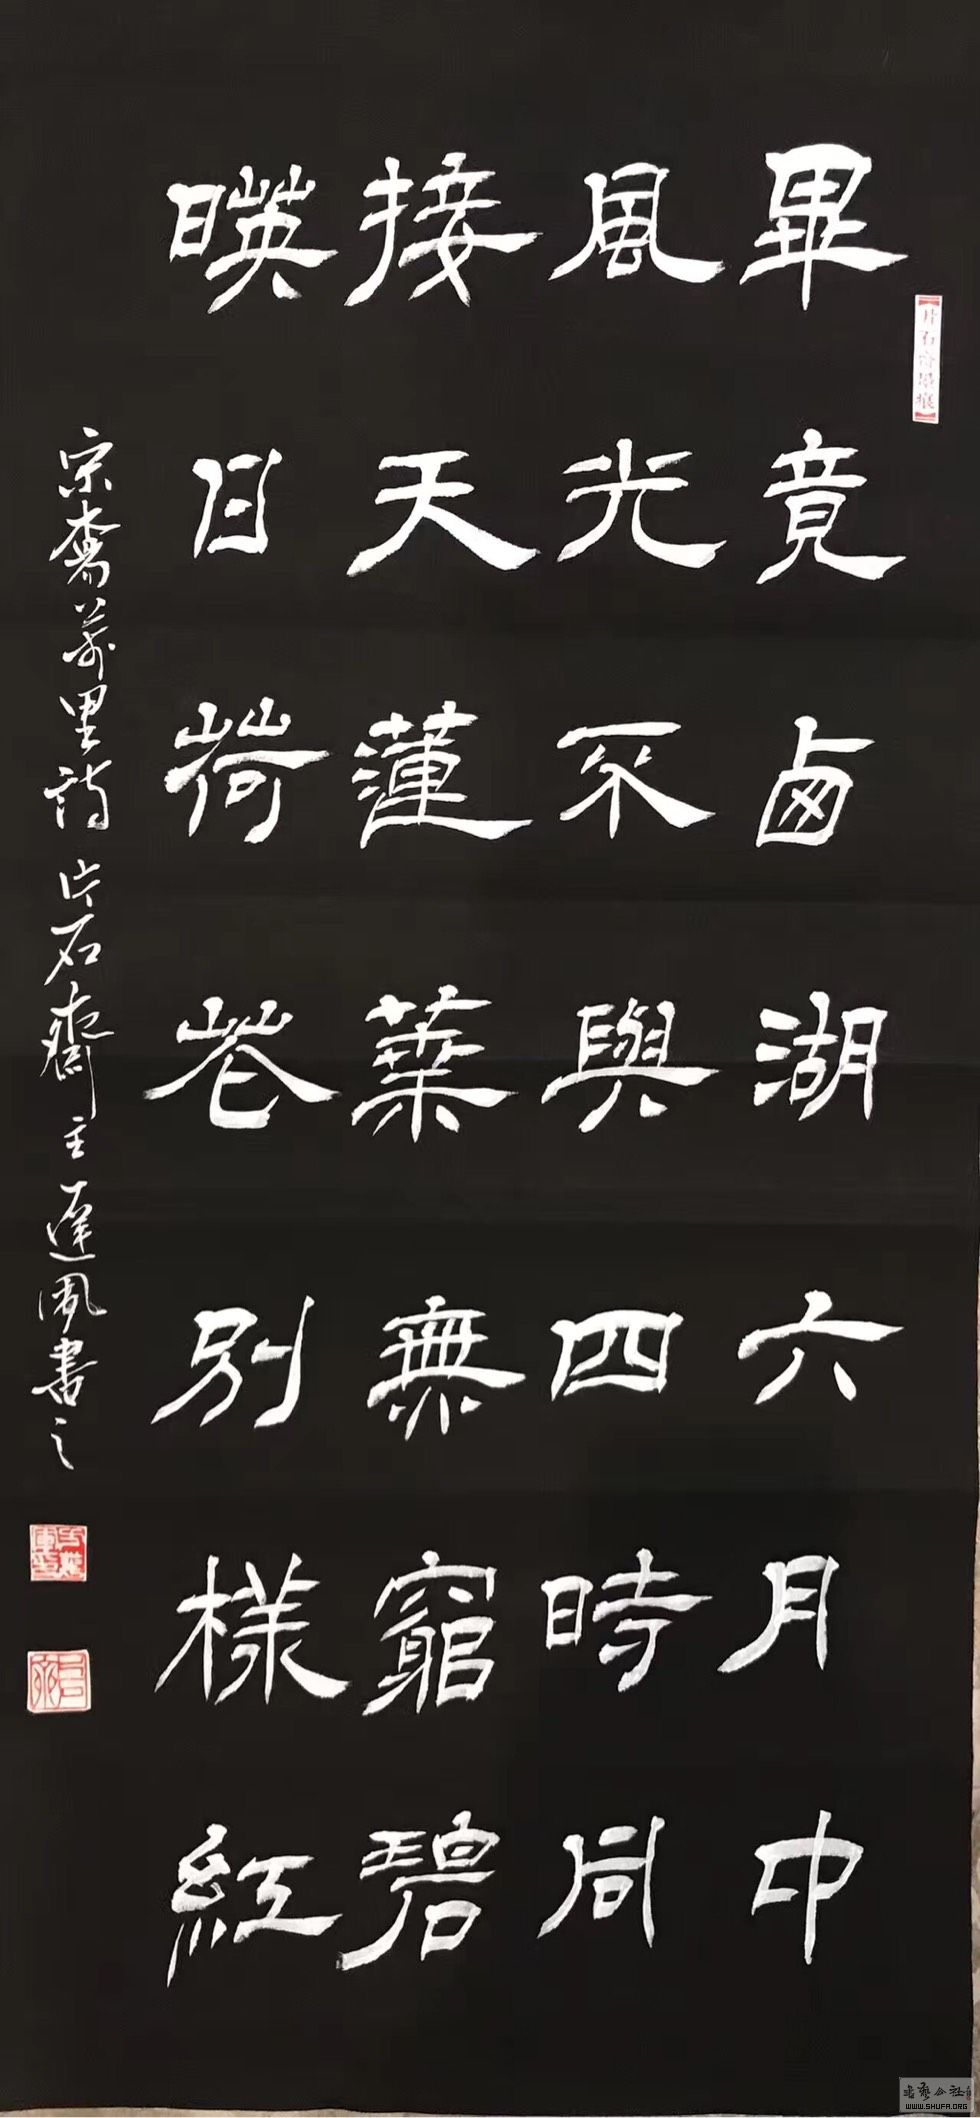 畢竟卥湖六月中
風光不與四時同
接天蓮葉無窮碧
暎日荷花別樣紅
宋楊萬里詩片石齋主書之
书艺公社
WWW.SHUFA.ORG